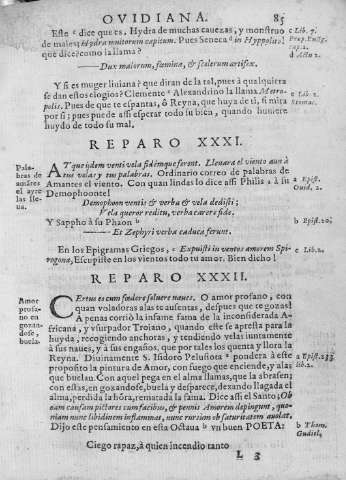 OVIDIANA. 85
Este c dice que es, Hydra de muchas cavezas, y monstruo
de males; Hydra multorum capitum. Pues Seneca d in Hyppolit.
que dice? como la llama?
c Lib. 7.
cap. 2.
d Actu 2.
—Dux malorum, fœmina, & scelerum artifex.
Y si es muger liuiana? que diran de la tal, pues à qualquiera
se dan estos elogios? Clemente e Alexandrino la llama
Pues de que te espantas, ô Reyna, que huya de ti, si mira
por si; pues puede assi esperar todo su bien, quando huuiere
huydo de todo su mal.
REPARO XXXI.
Palabras
de
amāres
el ayre
las lleua.
AT que idem venti vela fidemque ferent. Llenara el viento aun à
tus velas y tus palabras. Ordinario correo de palabras de
Amantes el viento. Con quan lindas lo dice assi Philis a à su
Demophoonte!
a Epist.
Ouid. 2.
Demophoon ventis & verba & vela dedisti;
Vela queror reditu, verba carere fide.
Y Sappho à su Phaon b
b Epist. 20.
—Et Zephyri verba caduca ferunt.
En los Epigramas Griegos, c Expuisti in ventos amorem
Escupiste en los vientos todo tu amor. Bien dicho!
c Lib. 2.
REPARO XXXII.
Amor
profano
en
gozandose,
buela.
CErtus es cum fœdere soluere naues. O amor profano, con
quan voladoras alas te ausentas, despues que te gozas!
A penas corriò la infame fama de la inconsiderada Africana,
y vsurpador Troiano, quando este se apresta para la
huyda, recogiendo anchoras, y tendiendo velas iuntamente
à sus naues, y à sus engaños, que por tales los queata y llora la
Reyna. Diuinamente S. Isidoro Pelusiota a pondera à este
proposito la pintura de Amor, con fuego que enciende, y alas
que buelan. Con aquel pega en el alma llamas, que la abrasen;
con estas, en gozandose, buela y desparece, dexando llagada el
alma, perdida la hōra, rematada la faina. Dice assi el Santo; Ob
eam causam pictores cum facibus, & pennis Amorem depingunt, quoniam
nunc libidinem inflammat, nunc rursion ob saturitatem auolat.
Dijo este pensamiento en esta Octaua b vn buen POETA:
a Epist. 233.
lib. 2.
b Thom.
Gudiel.
Ciego rapaz, à quien incendio tanto
L 3